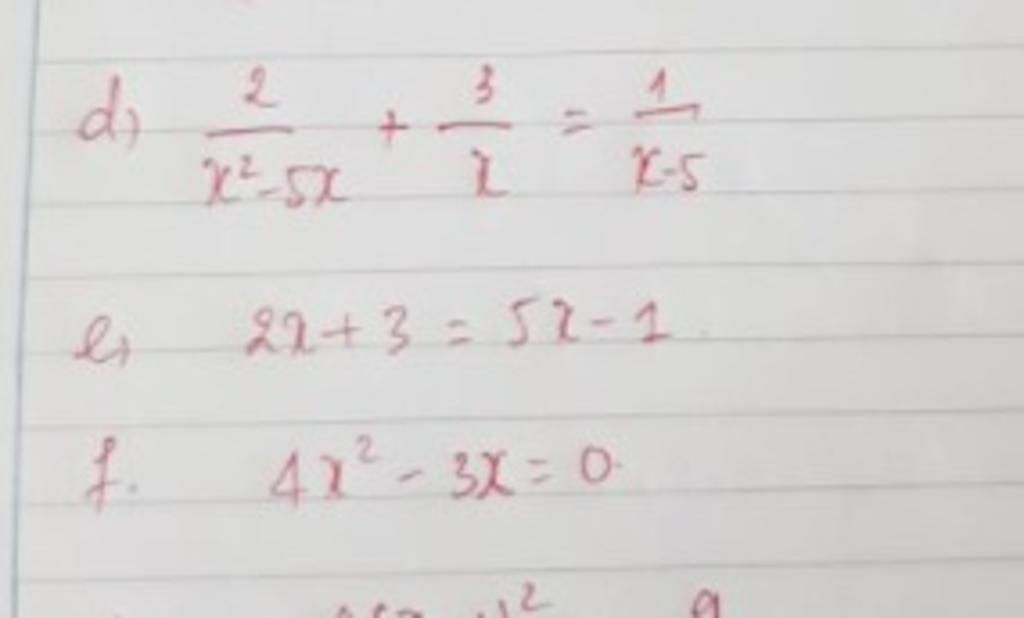 d) 2/(x²-5x) + 3/x = 1/(x-5)
e) 2x+3 = 5x-1.
f. 4x² - 3x = 0.